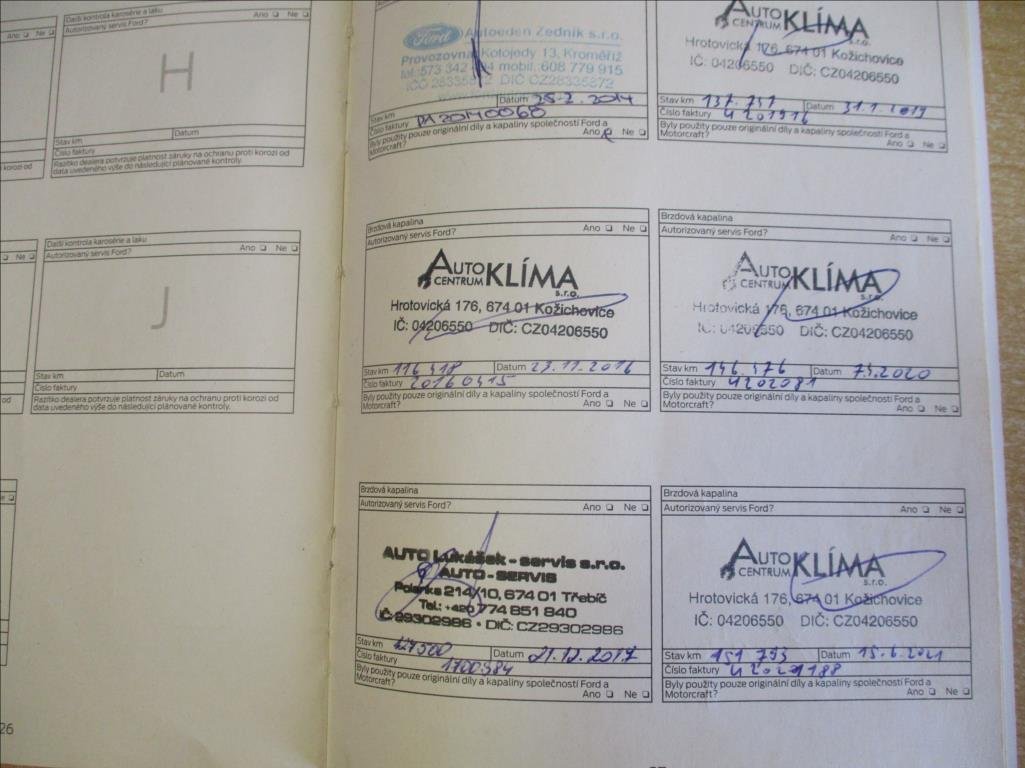 Další kontrola karosérie a laku
Autorizovaný servis Ford?
Ano Ne
H
Stav km
Datum
Číslo faktury
Razítko dealera potvrzuje platnost záruky na ochranu proti korozi od
data uvedeného výše do následující plánované kontroly.
Ano Ne
korozi od
Další kontrola karosérie a laku
Autorizovaný servis Ford?
Ano Ne
J
Stav km
Datum
Číslo faktury
Razítko dealera potvrzuje platnost záruky na ochranu proti korozi od
data uvedeného výše do následující plánované kontroly.
Ne
od
26
Ford Autoeden Zedník s.r.o.
Provozovna Kotojedy 13, Kroměříž
tel.:573 342 mobil.:608 779 915
DIČ CZ28335872
Stav km
Datum 25-2. 2014
Číslo faktury PA20140068
Byly použity pouze originální díly a kapaliny společnosti Ford a
Motorcraft?
Ano Ne
AUTO KLÍMA
CENTRUM
s.r.o.
Hrotovická 176, 674 01 Kožichovice
IČ: 04206550 DIČ: CZ04206550
Stav km 137.757 Datum 31.1.2019
Číslo faktury 4201916
Byly použity pouze originální díly a kapaliny společnosti Ford a
Motorcraft?
Ano Ne
Brzdová kapalina
Autorizovaný servis Ford?
Ano Ne
AUTO KLÍMA
CENTRUM
s.r.o.
Hrotovická 176, 674 01 Kožichovice
IČ: 04206550 DIČ: CZ04206550
Stav km 116 418 Datum 23.11.2016
Číslo faktury 20160415
Byly použity pouze originální díly a kapaliny společnosti Ford a
Motorcraft?
Ano Ne
Brzdová kapalina
Autorizovaný servis Ford?
Ano Ne
AUTO KLÍMA
CENTRUM
s.r.o.
Hrotovická 176, 674 01 Kožichovice
IČ: 04206550 DIČ: CZ04206550
Stav km 146.476 Datum 2020
Číslo faktury 4202081
Byly použity pouze originální díly a kapaliny společnosti Ford a
Motorcraft?
Ano Ne
Brzdová kapalina
Autorizovaný servis Ford?
Ano Ne
AUTO Lukášek - servis s.r.o.
AUTO - SERVIS
Polanka 214/10, 674 01 Třebíč
Tel.: +420 774 851 840
IČ: 29302986 • DIČ: CZ29302986
Stav km 127500
Datum 21.12.2017
Číslo faktury 1700584
Byly použity pouze originální díly a kapaliny společnosti Ford a
Motorcraft?
Ano Ne
Brzdová kapalina
Autorizovaný servis Ford?
Ano Ne
AUTO KLÍMA
CENTRUM
s.r.o.
Hrotovická 176, 674 01 Kožichovice
IČ: 04206550 DIČ: CZ04206550
Stav km 151 793 Datum 15.6.2021
Číslo faktury
Byly použity pouze originální díly a kapaliny společnosti Ford a
Motorcraft?
Ano Ne